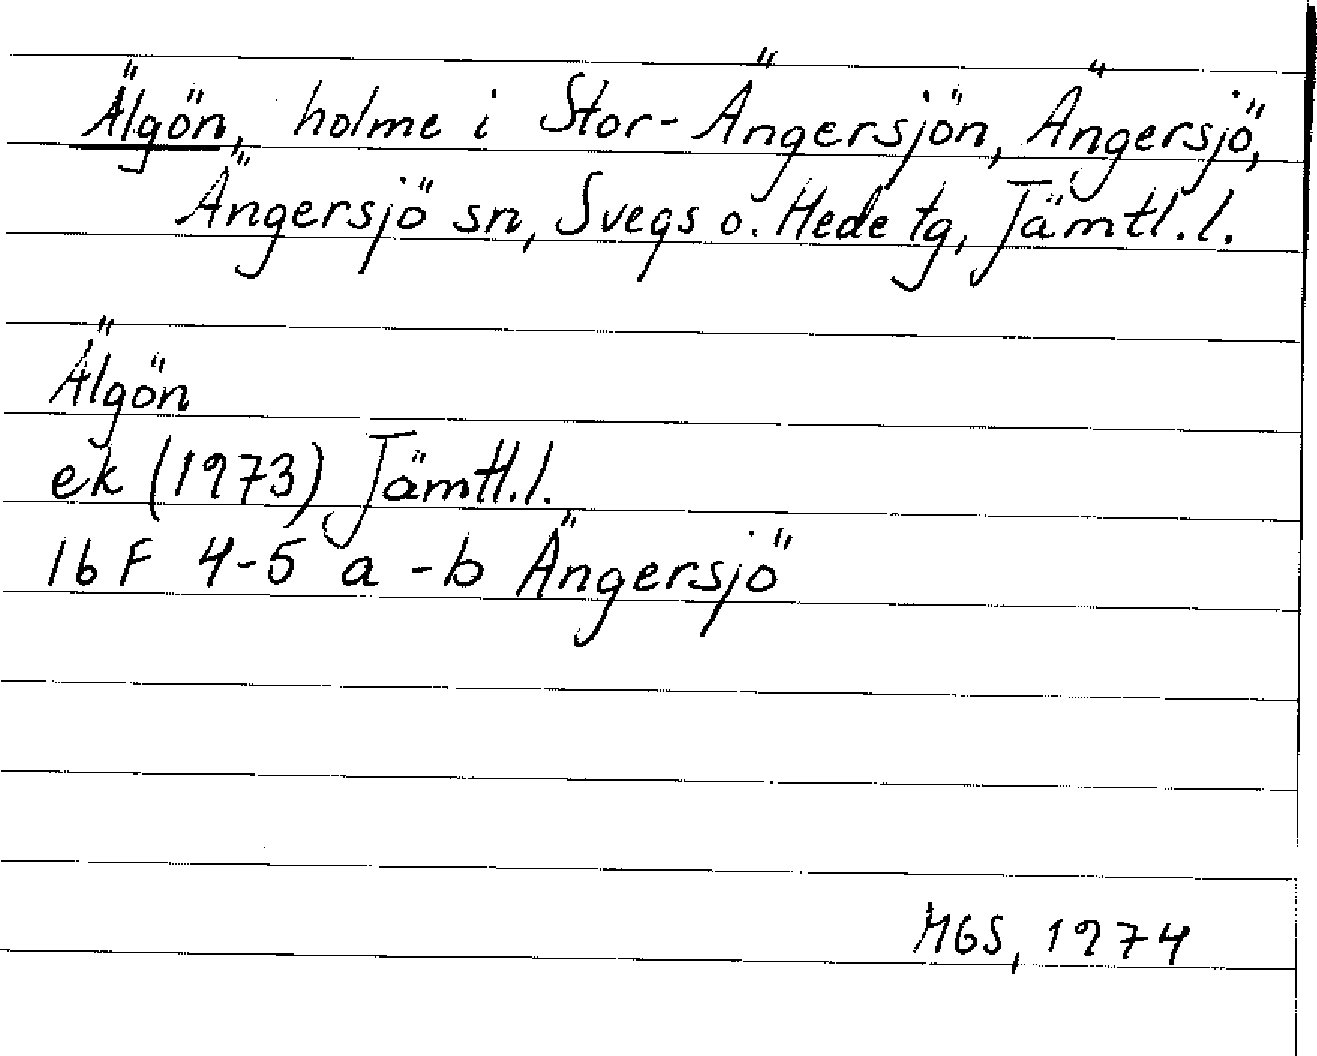 Älgön, holme i Stor-Ängersjön, Ängersjö,
Ängersjö sn, Svegs o. Hede tg, Jämtl.l.
Älgön
ek (1973) Jämtl.l.
16F 4-5 a-b Ängersjö
MGS, 1974